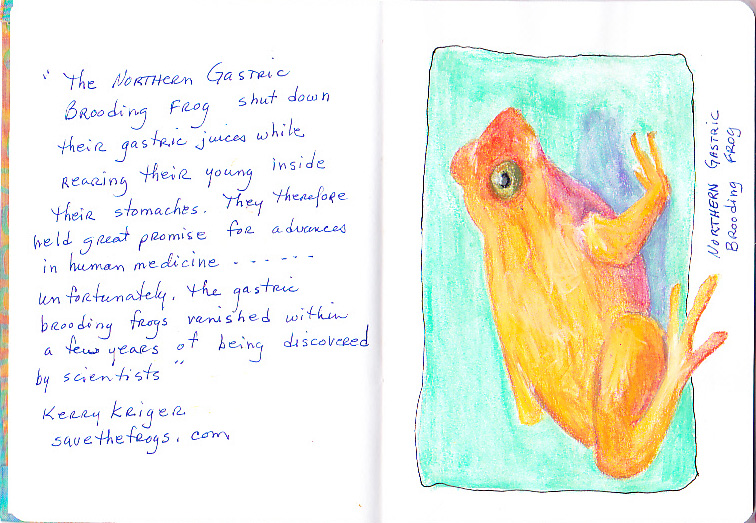 " The Northern Gastric
Brooding Frog shut down
their gastric juices while
rearing their young inside
their stomaches. They therefore
held great promise for advances
in human medicine - - - - - -
unfortunately, the gastric
brooding frogs vanished within
a few years of being discovered
by scientists "
Kerry Kriger
savethefrogs.com
Northern Gastric
Brooding Frog